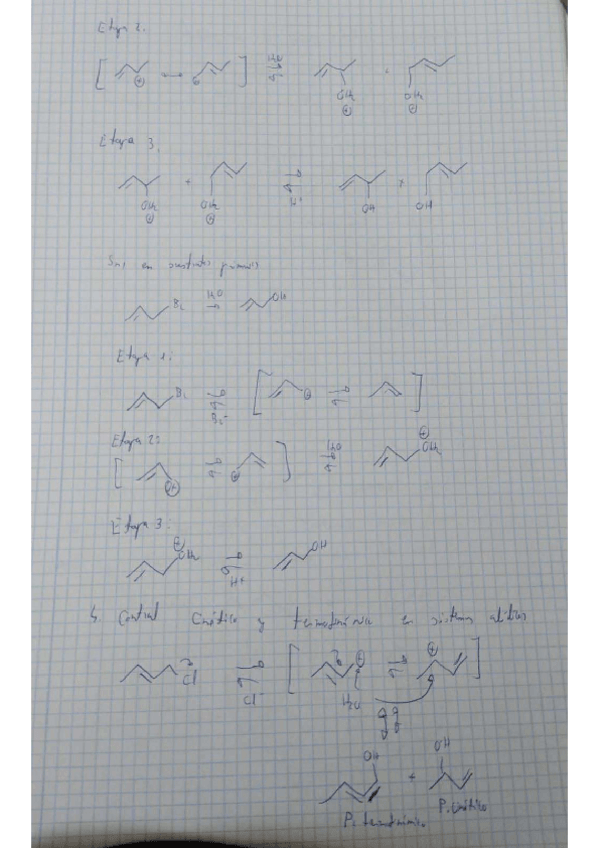 Etapa 2.
[ ⊕ ↔ ⊕ ] H2O OH2 ⊕ , OH2 ⊕
Etapa 3.
OH2 ⊕ + OH2 ⊕ H+ OH + OH
SN1 en sustratos primarios
Br H2O OH
Etapa 1:
Br Br- [ ⊕ ]
Etapa 2:
[ ⊕ ⊕ ] H2O OH2 ⊕
Etapa 3:
OH2 ⊕ H+ OH
4. Control Cinético y termodinámico en sistemas alílicos
Cl Cl- [ ⊕ ⊕ ]
H2O
OH + OH
P. termodinámico P. cinético